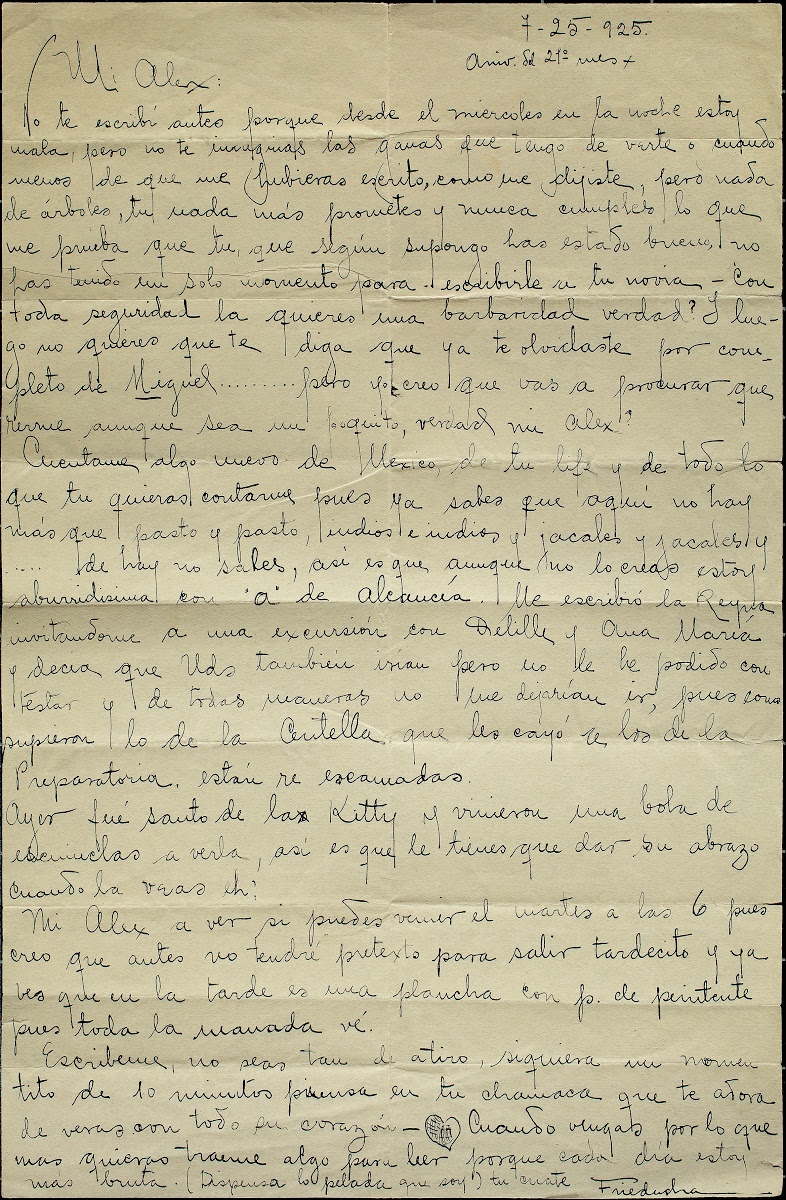 7-25-925.
Aniv. del 21º mes x
Mi Alex:
No te escribí antes porque desde el miércoles en la noche estoy
mala, pero no te imaginas las ganas que tengo de verte o cuando
menos de que me hubieras escrito, como me dijiste, pero nada
de árboles, tu nada más prometes y nunca cumples lo que
me prueba que tu, que según supongo has estado bueno, no
has tenido un solo momento para escribirle a tu novia - Con
toda seguridad la quieres una barbaridad verdad? Y lue-
go no quieres que te diga que ya te olvidaste por com-
pleto de Miguel......... pero yo creo que vas a procurar que
rerme aunque sea un poquito, verdad mi Alex?
Cuentame algo nuevo de Mexico, de tu life y de todo lo
que tu quieras contarme pues ya sabes que aquí no hay
más que pasto y pasto, indios e indios y jacales y jacales y
..... de hay no sales, así es que aunque no lo creas estoy
aburridisima con "a" de Alcancía. Me escribió la Reyna
invitandome a una excursión con Delille y Ana María
y decia que Uds también irían pero no le he podido con
testar y de todas maneras no me dejarían ir, pues como
supieron lo de la Centella que les cayó a los de la
Preparatoria, están re escamadas.
Ayer fué santo de la Kitty y vinieron una bola de
escuinclas a verla, así es que le tienes que dar su abrazo
cuando la veas eh?
Mi Alex a ver si puedes venir el martes a las 6 pues
creo que antes no tendré pretexto para salir tardecito y ya
ves que en la tarde es una plancha con p. de penitente
pues toda la manada vé.
Escribeme, no seas tan de atiro, siquiera un momen
tito de 10 minutos piensa en tu chamaca que te adora
de veras con todo su corazón - Cuando vengas por lo que
mas quieras traeme algo para leer porque cada día estoy
más bruta. (Dispensa lo pelada que soy) tu cuate Frieducha